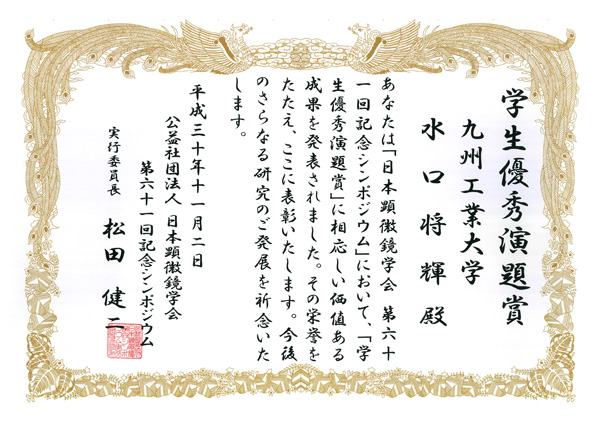 学生優秀演題賞
九州工業大学
水口将輝殿
あなたは「日本顕微鏡学会　第六十
一回記念シンポジウム」において、「学
生優秀演題賞」に相応しい価値ある
成果を発表されました。その栄誉を
たたえ、ここに表彰いたします。今後
のさらなる研究のご発展を祈念いた
します。
平成三十年十一月二日
公益社団法人　日本顕微鏡学会
第六十一回記念シンポジウム
実行委員長　松田健二